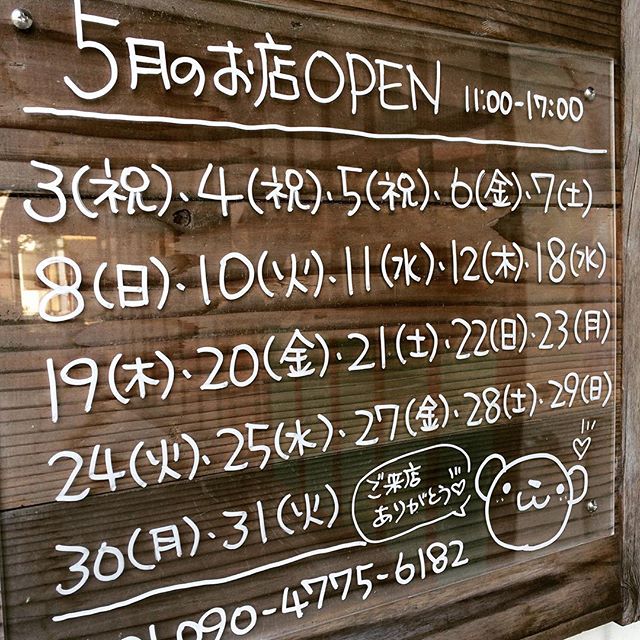 5月のお店OPEN 11:00-17:00
3(祝)・4(祝)・5(祝)・6(金)・7(土)
8(日)・10(火)・11(水)・12(木)・18(水)
19(木)・20(金)・21(土)・22(日)・23(月)
24(火)・25(水)・27(金)・28(土)・29(日)
30(月)・31(火)
ご来店
ありがとう♡
090-4775-6182